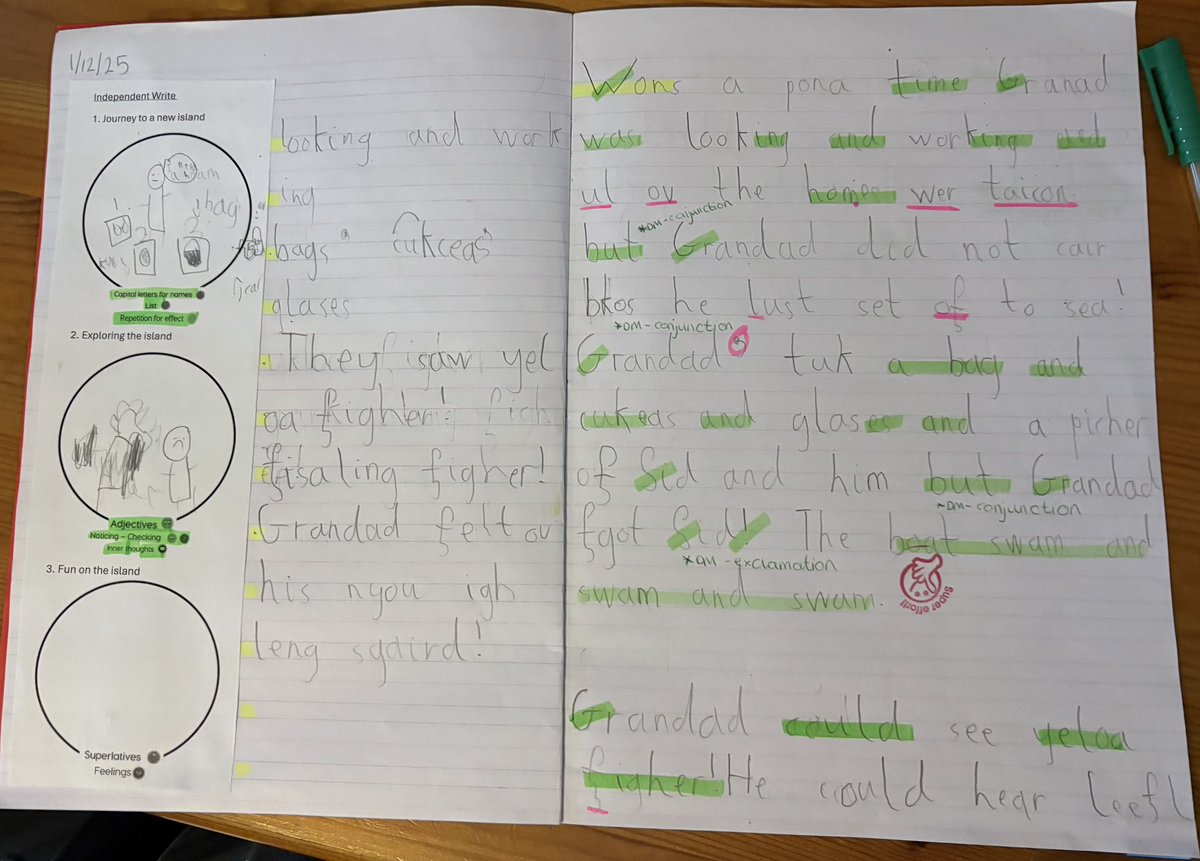 1/12/25
Independent Write
1. Journey to a new island
Capital letters for names
List
Repetition for effect
2. Exploring the island
Adjectives
Noticing – Checking
Inner thoughts
3. Fun on the island
Superlatives
Feelings
looking and work
ing
bags cukceas
glases
They saw yel
oa figher! fich
fisaling figher!
Grandad felt ov
his nyou igh
leng sgaird!
Wons a pona time Granad
was looking and working and
ul ov the homes wer taicon
*DM-conjunction
but Grandad did not cair
bkos he Just set of to sea!
*DM-conjunction
Grandad tuk a bag and
cukeas and glases and a picher
of Sid and him but Grandad
~DM-conjunction
fgot Sid! The boat swam and
*DM-exclamation
swam and swam.
super effort!
Grandad could see yeloa
figher! He could hear leefl